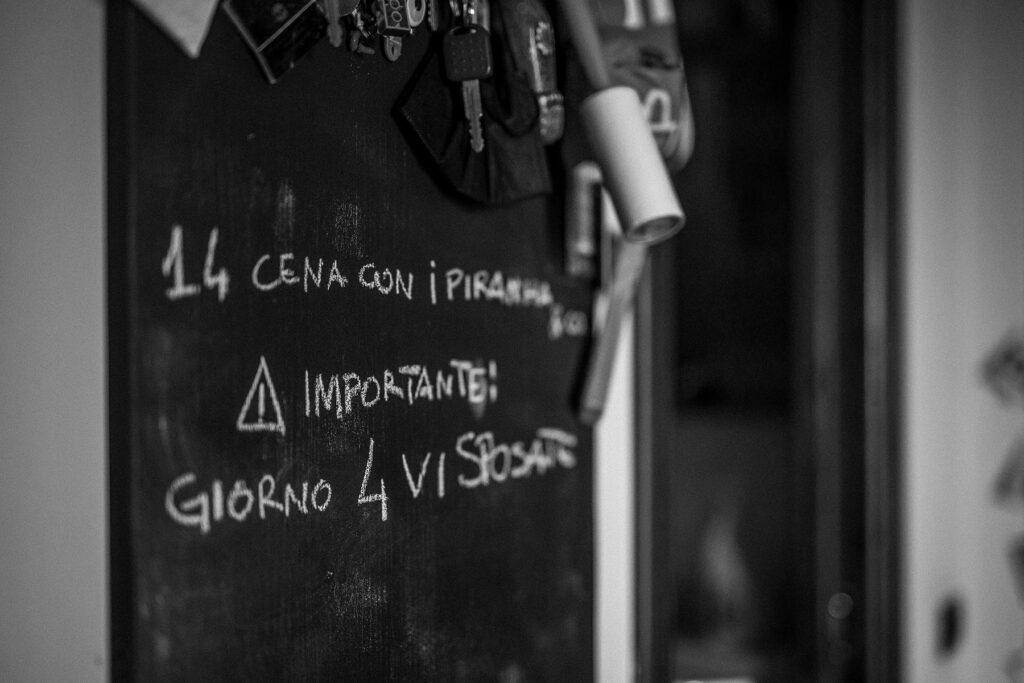 14 CENA CON i PIRANHA
⚠ IMPORTANTE!
GIORNO 4 VI SPOSATE